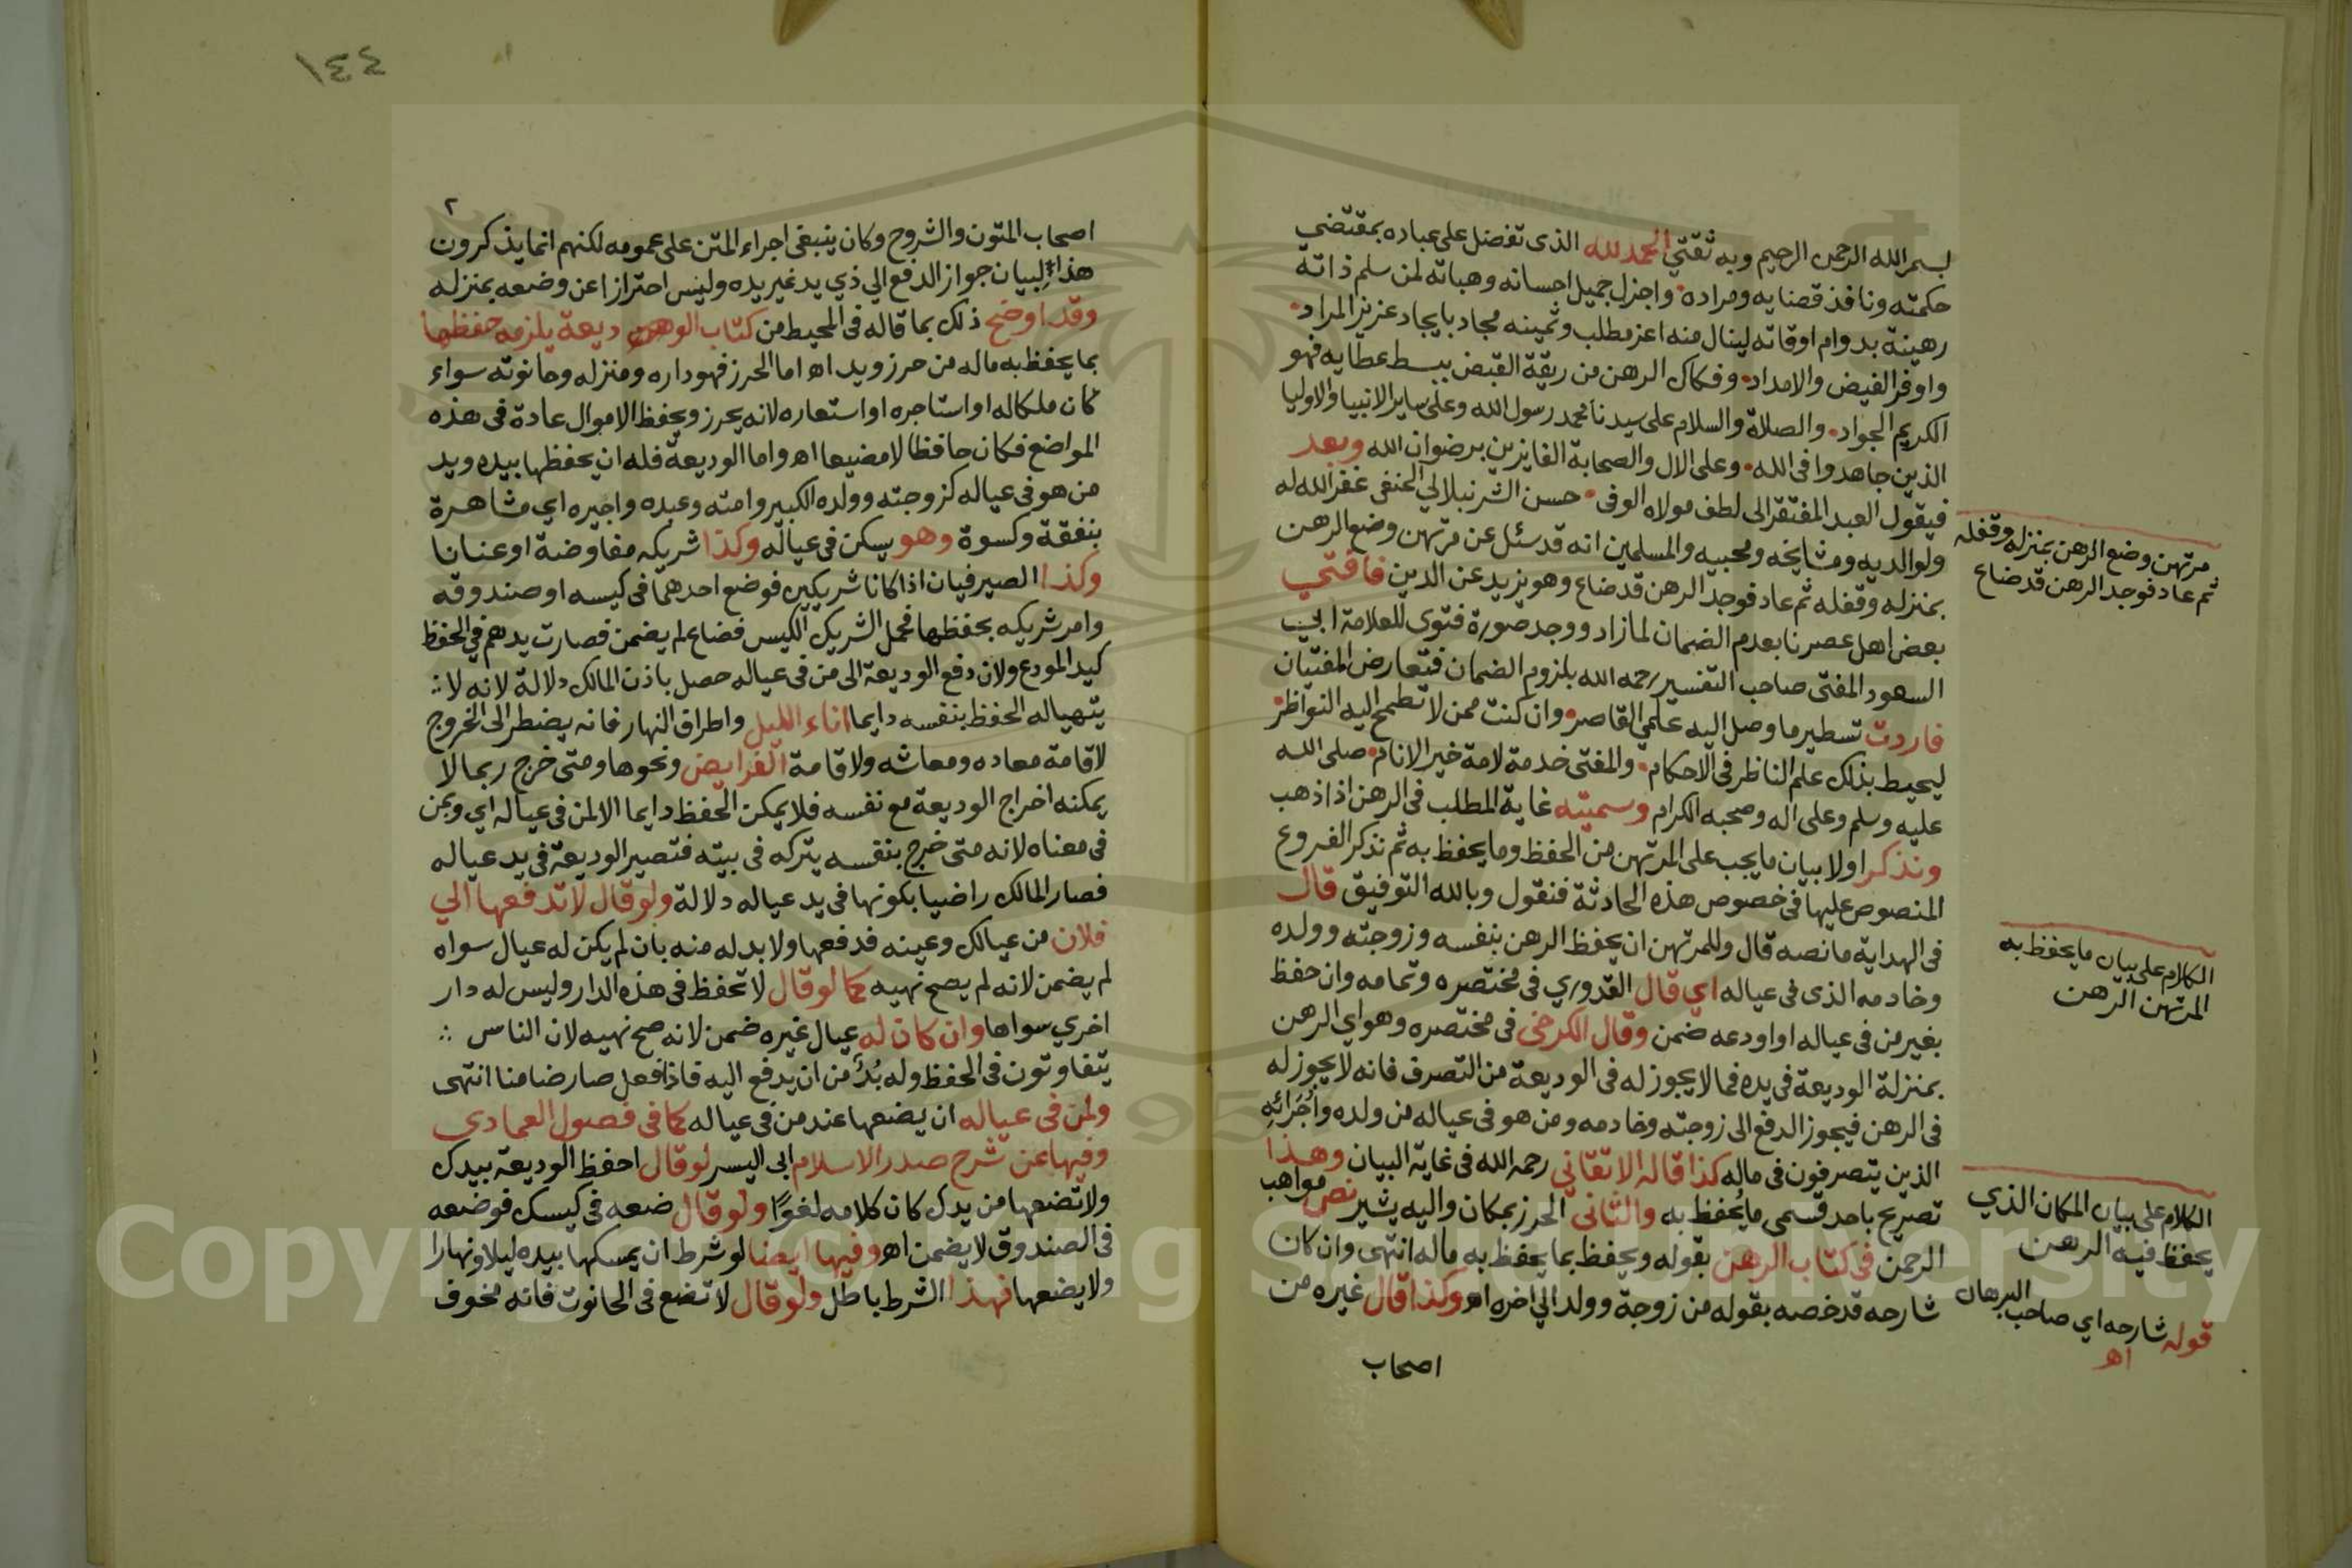 بسم الله الرحمن الرحيم وبه ثقتي الحمد لله الذى تفضل على عباده بمقتضي
حكمته ونافذ قضايه ومراده واجزل جميل احسانه وهباته لمن سلم ذاته
رهينة بدوام اوقاته لينال منه اعز مطلب وثمينه مجاد بايجاد عزيز المراد
واوفر الفيض والامداد وفكاك الرهن من ربقة القبض ببسط عطايه فهو
الكريم الجواد والصلاة والسلام على سيدنا محمد رسول الله وعلى ساير الانبيا والاوليا
الذين جاهدوا فى الله وعلى الال والصحابة الفايزين برضوان الله وبعد
فيقول العبد المفتقر الى لطف مولاه الوفى حسن الشرنبلالي الحنفى غفر الله له
ولوالديه ومشايخه ومحبيه والمسلمين انه قد سئل عن مرتهن وضع الرهن
بمنزله وقفله ثم عاد فوجد الرهن قد ضاع وهو يزيد عن الدين فافتي
بعض اهل عصرنا بعدم الضمان لما زاد ووجد صورة فتوى للعلامة ابي
السعود المفتى صاحب التفسير رحمه الله بلزوم الضمان فتعارض المفتيان
فاردت تسطير ما وصل اليه علمي القاصر وان كنت ممن لا تطمح اليه النواظر
ليحيط بذلك علم الناظر فى الاحكام والمفتى خدمة لامة خير الانام صلى الله
عليه وسلم وعلى اله وصحبه الكرام وسميته غاية المطلب فى الرهن اذا ذهب
ونذكر اولا بيان ما يجب على المرتهن من الحفظ وما يحفظ به ثم نذكر الفروع
المنصوص عليها فى خصوص هذه الحادثة فنقول وبالله التوفيق قال
فى الهداية ما نصه قال وللمرتهن ان يحفظ الرهن بنفسه وزوجته وولده
وخادمه الذى فى عياله اي قال القدوري فى مختصره وتمامه وان حفظ
بغير من فى عياله او اودعه ضمن وقال الكرخى فى مختصره وهو اي الرهن
بمنزلة الوديعة فى يده فما لا يجوز له فى الوديعة من التصرف فانه لا يجوز له
فى الرهن فيجوز الدفع الى زوجته وخادمه ومن هو فى عياله من ولده وأجرائه
الذين يتصرفون فى ماله كذا قاله الاتقاني رحمه الله فى غاية البيان وهذا
تصريح باحد قسمى ما يحفظ به والثانى الحرز بمكان واليه يشير نص مواهب
الرحمن فى كتاب الرهن بقوله ويحفظ بما يحفظ به ماله انتهى وان كان
شارحه قد خصه بقوله من زوجة وولد الي اخره اه وكذا قال غيره من
اصحاب
مرتهن وضع الرهن بمنزله وقفله
ثم عاد فوجد الرهن قد ضاع
الكلام على بيان ما يحفظ به
المرتهن الرهن
الكلام على بيان المكان الذي
يحفظ فيه الرهن
قوله شارحه اي صاحب البرهان
اه
١٤٤
٢
اصحاب المتون والشروح وكان ينبغى اجراء المتن على عمومه لكنهم انما يذكرون
هذا لبيان جواز الدفع الي ذي يد غير يده وليس احترازا عن وضعه بمنزله
وقد اوضح ذلك بما قاله فى المحيط من كتاب الوديعة يلزمه حفظها
بما يحفظ به ماله من حرز ويد اه اما الحرز فهو داره ومنزله وحانوته سواء
كان ملكا له او استاجره او استعاره لانه يحرز ويحفظ الاموال عادة فى هذه
المواضع فكان حافظا لا مضيعا اه واما الوديعة فله ان يحفظها بيده ويد
من هو فى عياله كزوجته وولده الكبير وامته وعبده واجيره اي مشاهرة
بنفقة وكسوة وهو يسكن فى عياله وكذا شريكه مفاوضة او عنانا
وكذا الصيرفيان اذا كانا شريكين فوضع احدهما فى كيسه او صندوقه
وامر شريكه بحفظها فحمل الشريك الكيس فضاع لم يضمن فصارت يدهم في الحفظ
كيد المودع ولان دفع الوديعة الى من فى عياله حصل باذن المالك دلالة لانه لا
يتهيا له الحفظ بنفسه دايما اناء الليل واطراف النهار فانه يضطر الى الخروج
لاقامة معاده ومعاشه ولاقامة الفرايض ونحوها ومتى خرج ربما لا
يمكنه اخراج الوديعة مع نفسه فلا يمكن الحفظ دايما الا لمن فى عياله اي وبمن
فى معناه لانه متى خرج بنفسه يتركه فى بيته فتصير الوديعة فى يد عياله
فصار المالك راضيا بكونها فى يد عياله دلالة ولو قال لا تدفعها الي
فلان من عيالك وعينه فدفعها ولا بد له منه بان لم يكن له عيال سواه
لم يضمن لانه لم يصح نهيه كما لو قال لا تحفظ فى هذه الدار وليس له دار
اخري سواها وان كان له عيال غيره ضمن لانه صح نهيه لان الناس
يتفاوتون فى الحفظ وله بد من ان يدفع اليه فاذا فعل صار ضامنا انتهى
ولمن فى عياله ان يضعها عند من فى عياله كما فى فصول العمادي
وفيها عن شرح صدر الاسلام ابى اليسر لو قال احفظ الوديعة بيدك
ولا تضعها من يدك كان كلامه لغوا ولو قال ضعه فى كيسك فوضعه
فى الصندوق لا يضمن اه وفيها ايضا لو شرط ان يمسكها بيده ليلا ونهارا
ولا يضعها فهذا الشرط باطل ولو قال لا تضع فى الحانوت فانه مخوف
Copyright © King Saud University